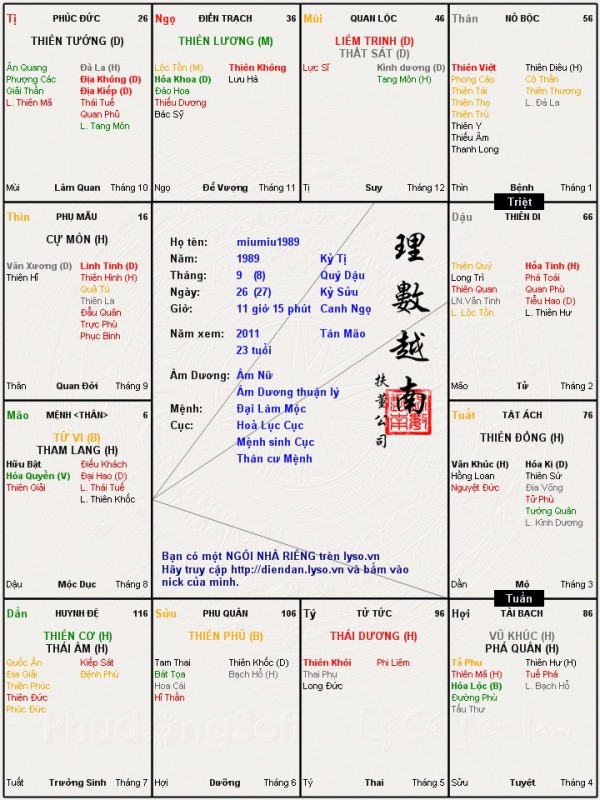 Tị PHÚC ĐỨC 26
THIÊN TƯỚNG (D)
Ân Quang Đà La (H)
Phượng Các Địa Không (D)
Giải Thần Địa Kiếp (D)
L. Thiên Mã Thái Tuế
Quan Phủ
L. Tang Môn
Mùi Lâm Quan Tháng 10
Ngọ ĐIỀN TRẠCH 36
THIÊN LƯƠNG (M)
Lộc Tồn (M) Thiên Không
Hóa Khoa (D) Lưu Hà
Đào Hoa
Thiếu Dương
Bác Sỹ
Ngọ Đế Vượng Tháng 11
Mùi QUAN LỘC 46
LIÊM TRINH (D)
THẤT SÁT (D)
Lực Sĩ Kình dương (D)
Tang Môn (H)
Tị Suy Tháng 12
Thân NÔ BỘC 56
Thiên Việt Thiên Diêu (H)
Phong Cáo Cô Thần
Thiên Tài Thiên Thương
Thiên Thọ L. Đà La
Thiên Trù
Thiên Y
Thiếu Âm
Thanh Long
Thìn Bệnh Tháng 1
Triệt
Thìn PHỤ MẪU 16
CỰ MÔN (H)
Văn Xương (D) Linh Tinh (D)
Thiên Hỉ Thiên Hình (H)
Quả Tú
Thiên La
Đẩu Quân
Trực Phù
Phục Binh
Thân Quan Đới Tháng 9
Họ tên: miumiu1989
Năm: 1989 Kỷ Tị
Tháng: 9 (8) Quý Dậu
Ngày: 26 (27) Kỷ Sửu
Giờ: 11 giờ 15 phút Canh Ngọ
Năm xem: 2011 Tân Mão
23 tuổi
Âm Dương: Âm Nữ
Âm Dương thuận lý
Mệnh: Đại Lâm Mộc
Cục: Hoả Lục Cục
Mệnh sinh Cục
Thân cư Mệnh
理數越南
扶董公司
Bạn có một NGÔI NHÀ RIÊNG trên lyso.vn
Hãy truy cập http://diendan.lyso.vn và bấm vào
nick của mình.
Dậu THIÊN DI 66
Thiên Quý Hỏa Tinh (H)
Long Trì Phá Toái
Thiên Quan Quan Phù
LN.Văn Tinh Tiểu Hao (D)
L. Lộc Tồn L. Thiên Hư
Mão Tử Tháng 2
Mão MỆNH <THÂN> 6
TỬ VI (B)
THAM LANG (H)
Hữu Bật Điếu Khách
Hóa Quyền (V) Đại Hao (D)
Thiên Giải L. Thái Tuế
L. Thiên Khốc
Dậu Mộc Dục Tháng 8
Tuất TẬT ÁCH 76
THIÊN ĐỒNG (H)
Văn Khúc (H) Hóa Kị (D)
Hồng Loan Thiên Sứ
Nguyệt Đức Địa Võng
Tử Phù
Tướng Quân
L. Kình Dương
Dần Mộ Tháng 3
Tuần
Dần HUYNH ĐỆ 116
THIÊN CƠ (H)
THÁI ÂM (H)
Quốc Ấn Kiếp Sát
Địa Giải Bệnh Phù
Thiên Phúc
Thiên Đức
Phúc Đức
Tuất Trường Sinh Tháng 7
Sửu PHU QUÂN 106
THIÊN PHỦ (B)
Tam Thai Thiên Khốc (D)
Bát Tọa Bạch Hổ (H)
Hoa Cái
Hỉ Thần
Hợi Dưỡng Tháng 6
Tý TỬ TỨC 96
THÁI DƯƠNG (H)
Thiên Khôi Phi Liêm
Thai Phụ
Long Đức
Tý Thai Tháng 5
Hợi TÀI BẠCH 86
VŨ KHÚC (H)
PHÁ QUÂN (H)
Tả Phụ Thiên Hư (H)
Thiên Mã (H) Tuế Phá
Hóa Lộc (B) L. Bạch Hổ
Đường Phù
Tấu Thư
Sửu Tuyệt Tháng 4